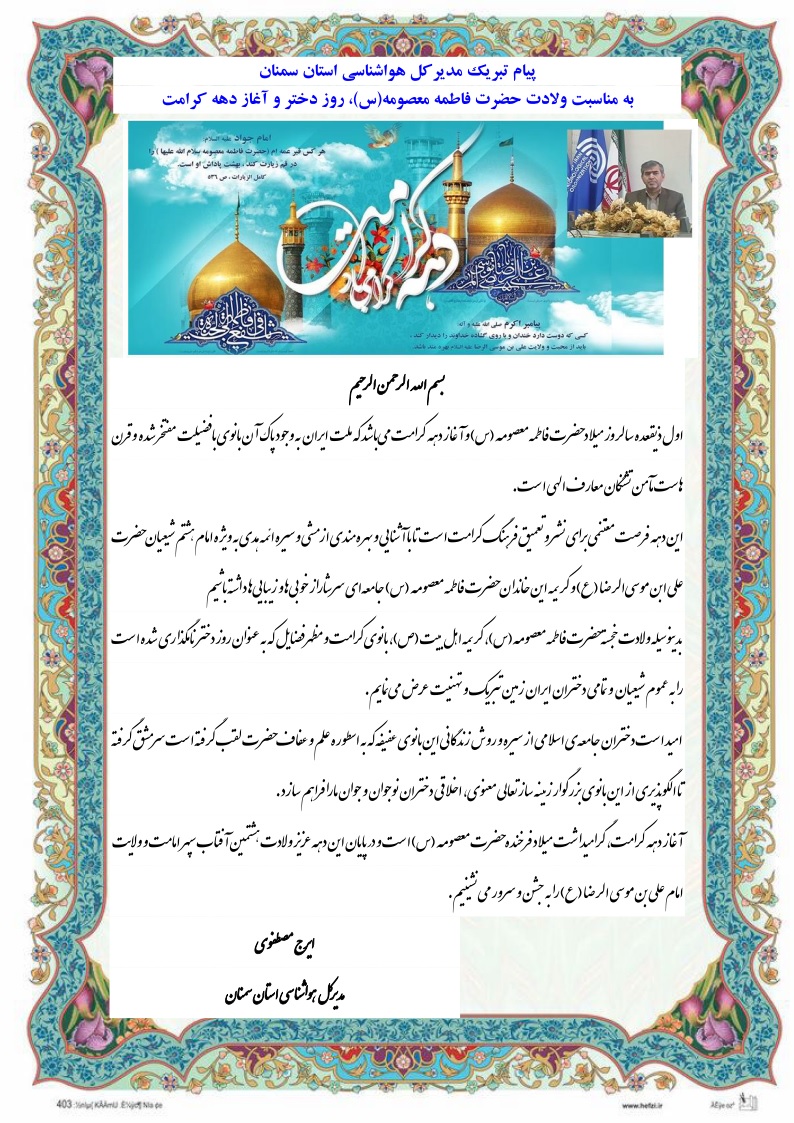 پیام تبریک مدیرکل هواشناسی استان سمنان
به مناسبت ولادت حضرت فاطمه معصومه(س)، روز دختر و آغاز دهه کرامت
امام جواد علیه السلام:
هر کس قبر عمه ام (حضرت فاطمه معصومه سلام الله علیها ) را
در قم زیارت کند ، بهشت پاداش او است.
کامل الزیارات ، ص ۵۳۶
دهه کرامت
گرامی باد
پیامبر اکرم صلی الله علیه و اله:
کسی که دوست دارد خندان و با روی گشاده خداوند را دیدار کند ،
باید از محبت و ولایت علی بن موسی الرضا علیه السلام بهره مند باشد
بسم الله الرحمن الرحیم
اول ذیقعده سالروز میلاد حضرت فاطمه معصومه (س) و آغاز دهه کرامت می باشد که ملت ایران به وجود پاک آن بانوی با فضیلت مفتخر شده و قرن
هاست مآمن تشنگان معارف الهی است.
این دهه فرصت مغتنمی برای نشر و تعمیق فرهنگ کرامت است تا با آشنایی و بهره مندی از مشی و سیره ائمه هدی به ویژه امام هشتم شیعیان حضرت
علی ابن موسی الرضا (ع) و کریمه این خاندان حضرت فاطمه معصومه (س) جامعه ای سرشار از خوبی ها و زیبایی ها داشته باشیم
بدینوسیله ولادت خجسته حضرت فاطمه معصومه (س)، کریمه اهل بیت (ص)، بانوی کرامت و مظهر فضایل که به عنوان روز دختر نامگذاری شده است
را به عموم شیعیان و تمامی دختران ایران زمین تبریک و تهنیت عرض می نمایم .
امید است دختران جامعه ی اسلامی از سیره و روش زندگانی این بانوی عفیفه که به اسطوره علم و عفاف حضرت لقب گرفته است سرمشق گرفته
تا الگوپذیری از این بانوی بزرگوار زمینه ساز تعالی معنوی، اخلاقی دختران نوجوان و جوان ما را فراهم سازد .
آغاز دهه کرامت، گرامیداشت میلاد فرخنده حضرت معصومه (س) است و در پایان این دهه عزیز ولادت هشتمین آفتاب سپهر امامت و ولایت
امام علی بن موسی الرضا (ع) را به جشن و سرور می نشینیم .
ایرج مصطفوی
مدیرکل هواشناسی استان سمنان
403
www.hefzi.ir